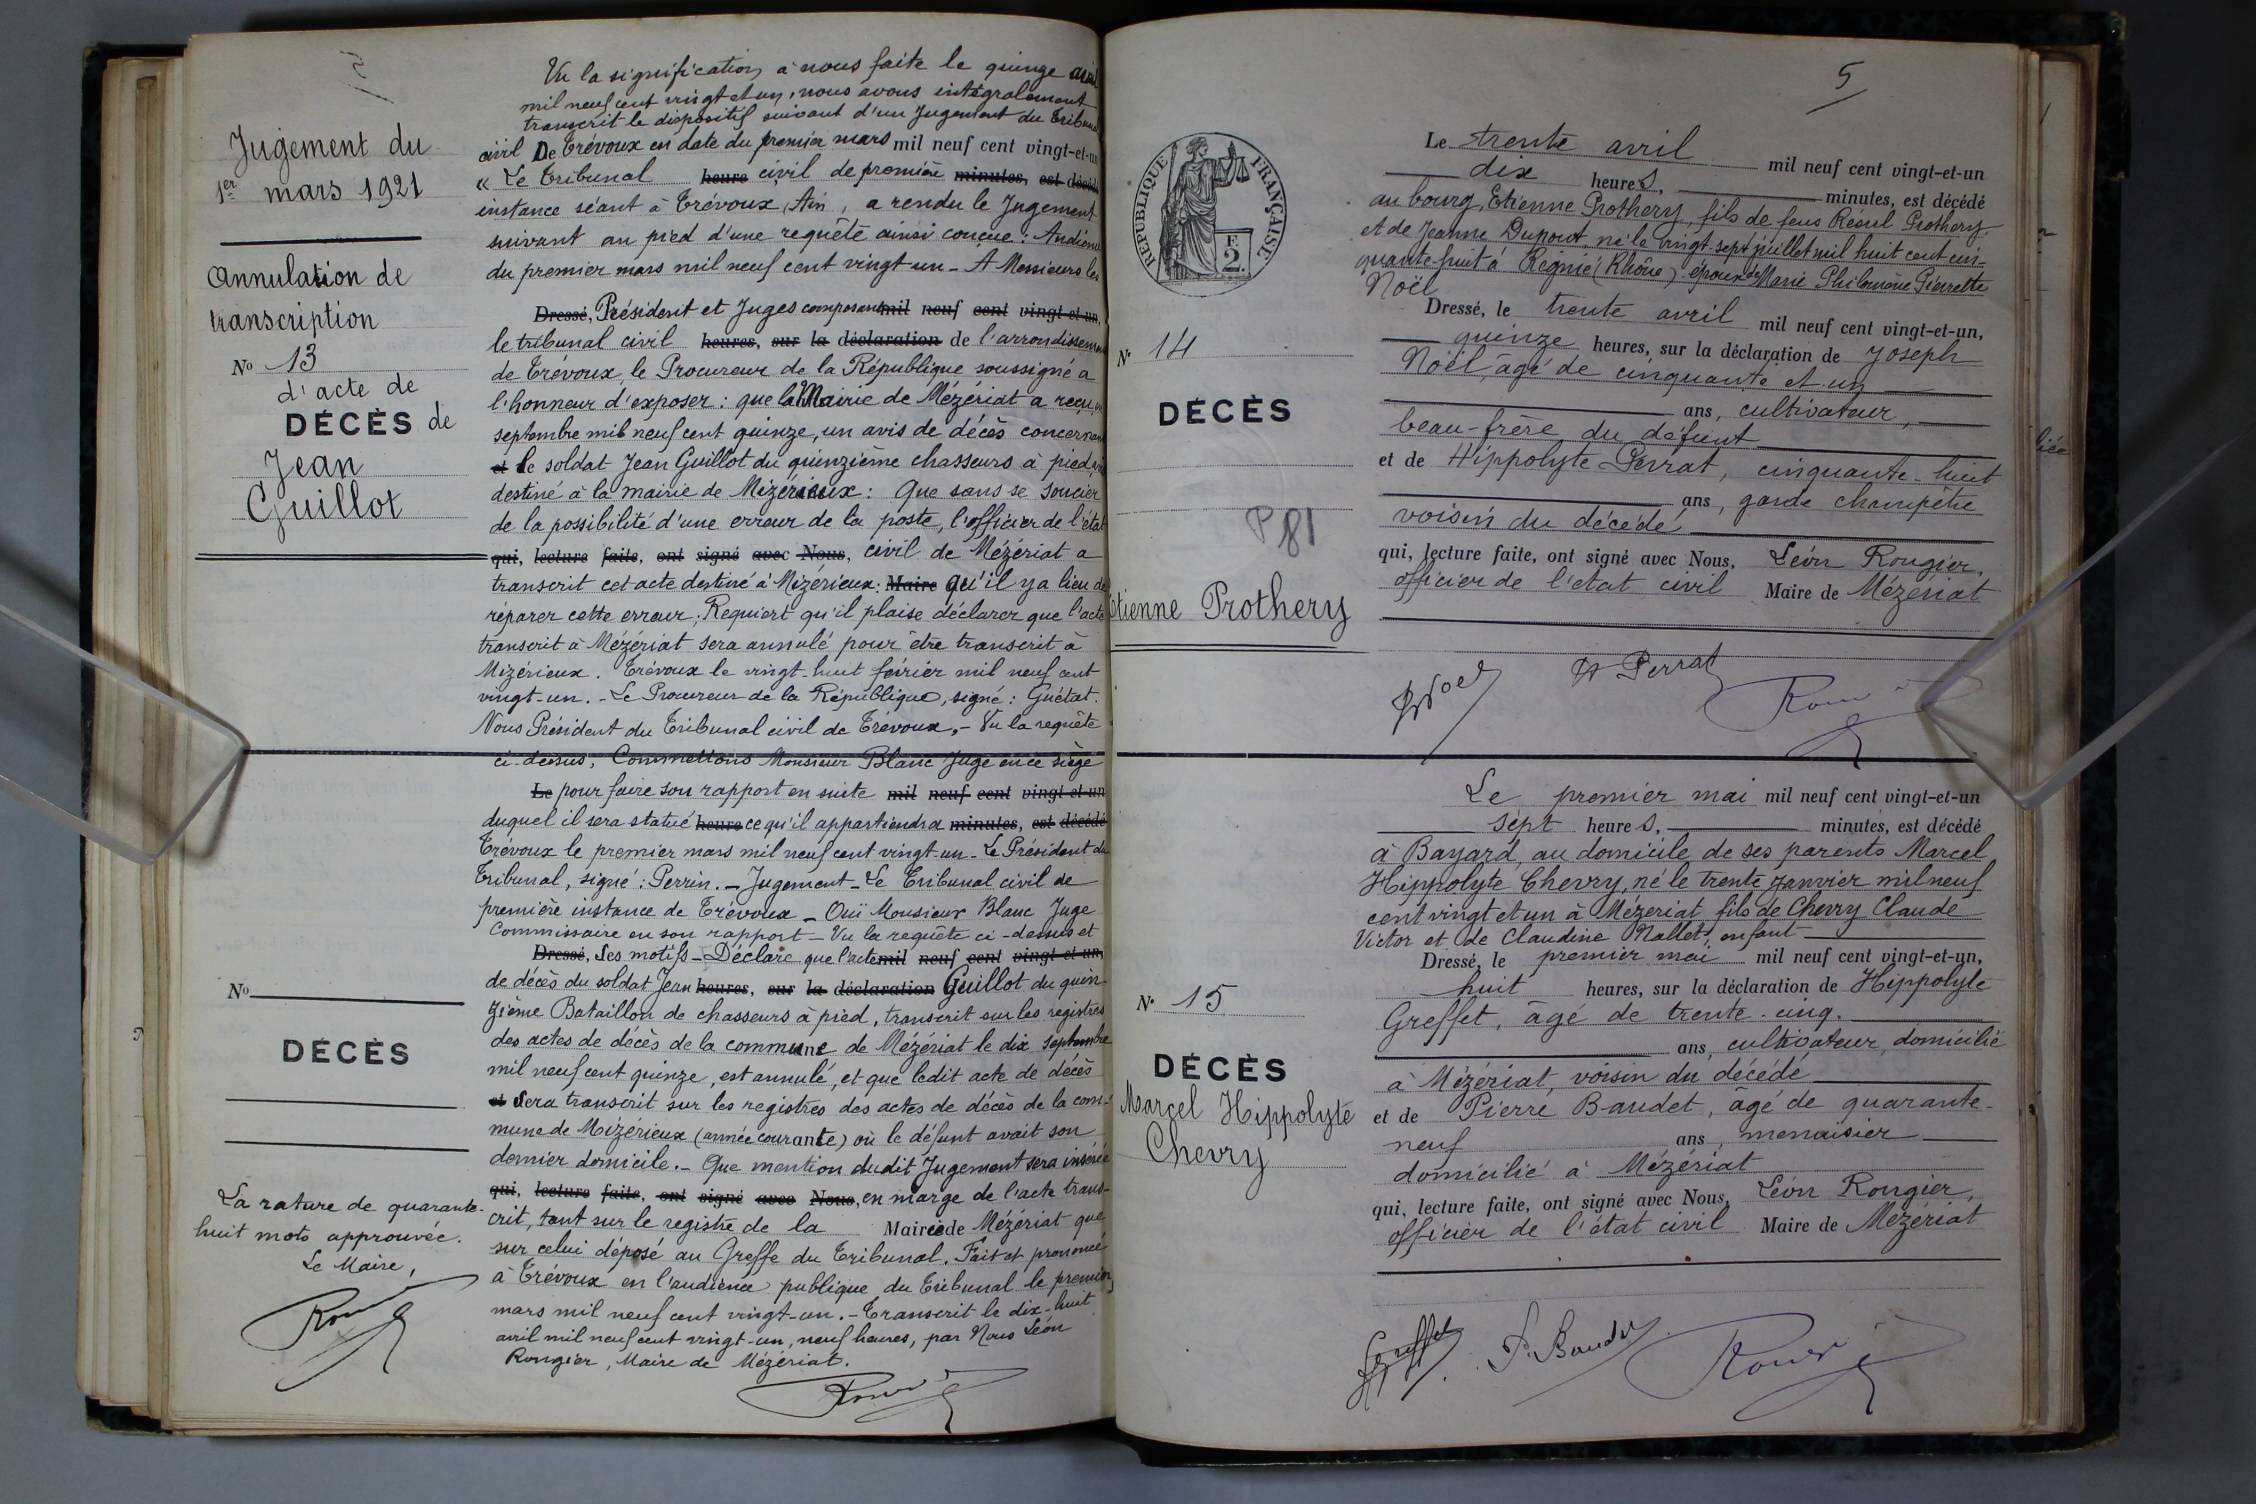 Jugement du
1er mars 1921
Annulation de
transcription
No 13
d'acte de
DÉCÈS de
Jean
Guillot
Vu la signification à nous faite le quinze avril
mil neuf cent vingt et un, nous avons intégralement
transcrit le dispositif suivant d'un Jugement du Tribunal
civil De Trévoux en date du premier mars mil neuf cent vingt-et-un
« Le Tribunal heure civil de première minutes, est décédé
instance séant à Trévoux (Ain, a rendu le Jugement
suivant au pied d'une requête ainsi conçue : Audience
du premier mars mil neuf cent vingt-un - A Messieurs les
Dressé, Président et Juges composant mil neuf cent vingt-et-un,
le tribunal civil heures, sur la déclaration de l'arrondissement
de Trévoux, le Procureur de la République soussigné a
l'honneur d'exposer : que la Mairie de Mézériat a reçu, en
septembre mil neuf cent quinze, un avis de décès concernant
et le soldat Jean Guillot du quinzième chasseurs à pied
destiné à la mairie de Mizérieux : Que sans se soucier
de la possibilité d'une erreur de la poste, l'officier de l'état
qui, lecture faite, ont signé avec Nous, civil de Mézériat a
transcrit cet acte destiné à Mizérieux : Maire qu'il y a lieu de
réparer cette erreur ; Requiert qu'il plaise déclarer que l'acte
transcrit à Mézériat sera annulé pour être transcrit à
Mizérieux. Trévoux le vingt-huit février mil neuf cent
vingt-un. - Le Procureur de la République, signé : Guétat.
Nous Président du Tribunal civil de Trévoux, - Vu la requête
ci-dessus, Commettons Monsieur Blanc Juge en ce siège
Le pour faire son rapport en suite mil neuf cent vingt-et-un
duquel il sera statué heure ce qu'il appartiendra minutes, est décédé
Trévoux le premier mars mil neuf cent vingt-un - Le Président du
Tribunal, signé : Perrin. - Jugement - Le Tribunal civil de
première instance de Trévoux - Ouï Monsieur Blanc Juge
Commissaire en son rapport - Vu la requête ci-dessus et
Dressé, Ses motifs - Déclare que l'acte mil neuf cent vingt-et-un,
de décès du soldat Jean heures, sur la déclaration Guillot du quin-
zième Bataillon de chasseurs à pied, transcrit sur les registres
des actes de décès de la commune de Mézériat le dix septembre
mil neuf cent quinze, est annulé, et que ledit acte de décès
et Sera transcrit sur les registres des actes de décès de la com-
mune de Mizerieux (année courante) où le défunt avait son
dernier domicile. - Que mention dudit Jugement sera insérée
qui, lecture faite, ont signé avec Nous, en marge de l'acte trans-
crit, tant sur le registre de la Mairie de Mézériat que
sur celui déposé au Greffe du Tribunal. Fait et prononcé
à Trévoux en l'audience publique du Tribunal le premier
mars mil neuf cent vingt-un. - Transcrit le dix-huit
avril mil neuf cent vingt-un, neuf heures, par Nous Léon
Rougier, Maire de Mézériat.
No
DÉCÈS
La rature de quarante-
huit mots approuvée.
Le Maire,
5
RÉPUBLIQUE FRANÇAISE.
E
2.
No 14
DÉCÈS
P 81
Etienne Prothery
Le trente avril mil neuf cent vingt-et-un
dix heures, minutes, est décédé
au bourg, Etienne Prothery, fils de feus Prothery
et de Jeanne Dupont, né le vingt-sept juillet mil huit cent cin-
quante-huit à Regnié (Rhône) époux de Marie Philomène Pierrette
Noël
Dressé, le trente avril mil neuf cent vingt-et-un,
quinze heures, sur la déclaration de Joseph
Noël, âgé de cinquante et un
ans, cultivateur,
beau-frère du défunt
et de Hippolyte Perrat, cinquante-huit
ans, garde champêtre
voisin du décédé
qui, lecture faite, ont signé avec Nous, Léon Rougier,
officier de l'état civil Maire de Mézériat
JNoel H Perrat
No 15
DÉCÈS
Marcel Hippolyte
Chevry
Le premier mai mil neuf cent vingt-et-un
sept heures, minutes, est décédé
à Bayard, au domicile de ses parents Marcel
Hippolyte Chevry, né le trente Janvier mil neuf
cent vingt et un à Mézeriat fils de Chevry Claude
Victor et de Claudine Mallet, enfant
Dressé, le premier mai mil neuf cent vingt-et-un,
huit heures, sur la déclaration de Hippolyte
Greffet, âgé de trente-cinq.
ans, cultivateur, domicilié
à Mézériat, voisin du décédé
et de Pierre Baudet, âgé de quarante-
neuf ans, menuisier
domicilié à Mézériat
qui, lecture faite, ont signé avec Nous, Léon Rougier,
officier de l'état civil Maire de Mézériat
Greffet P. Baudet